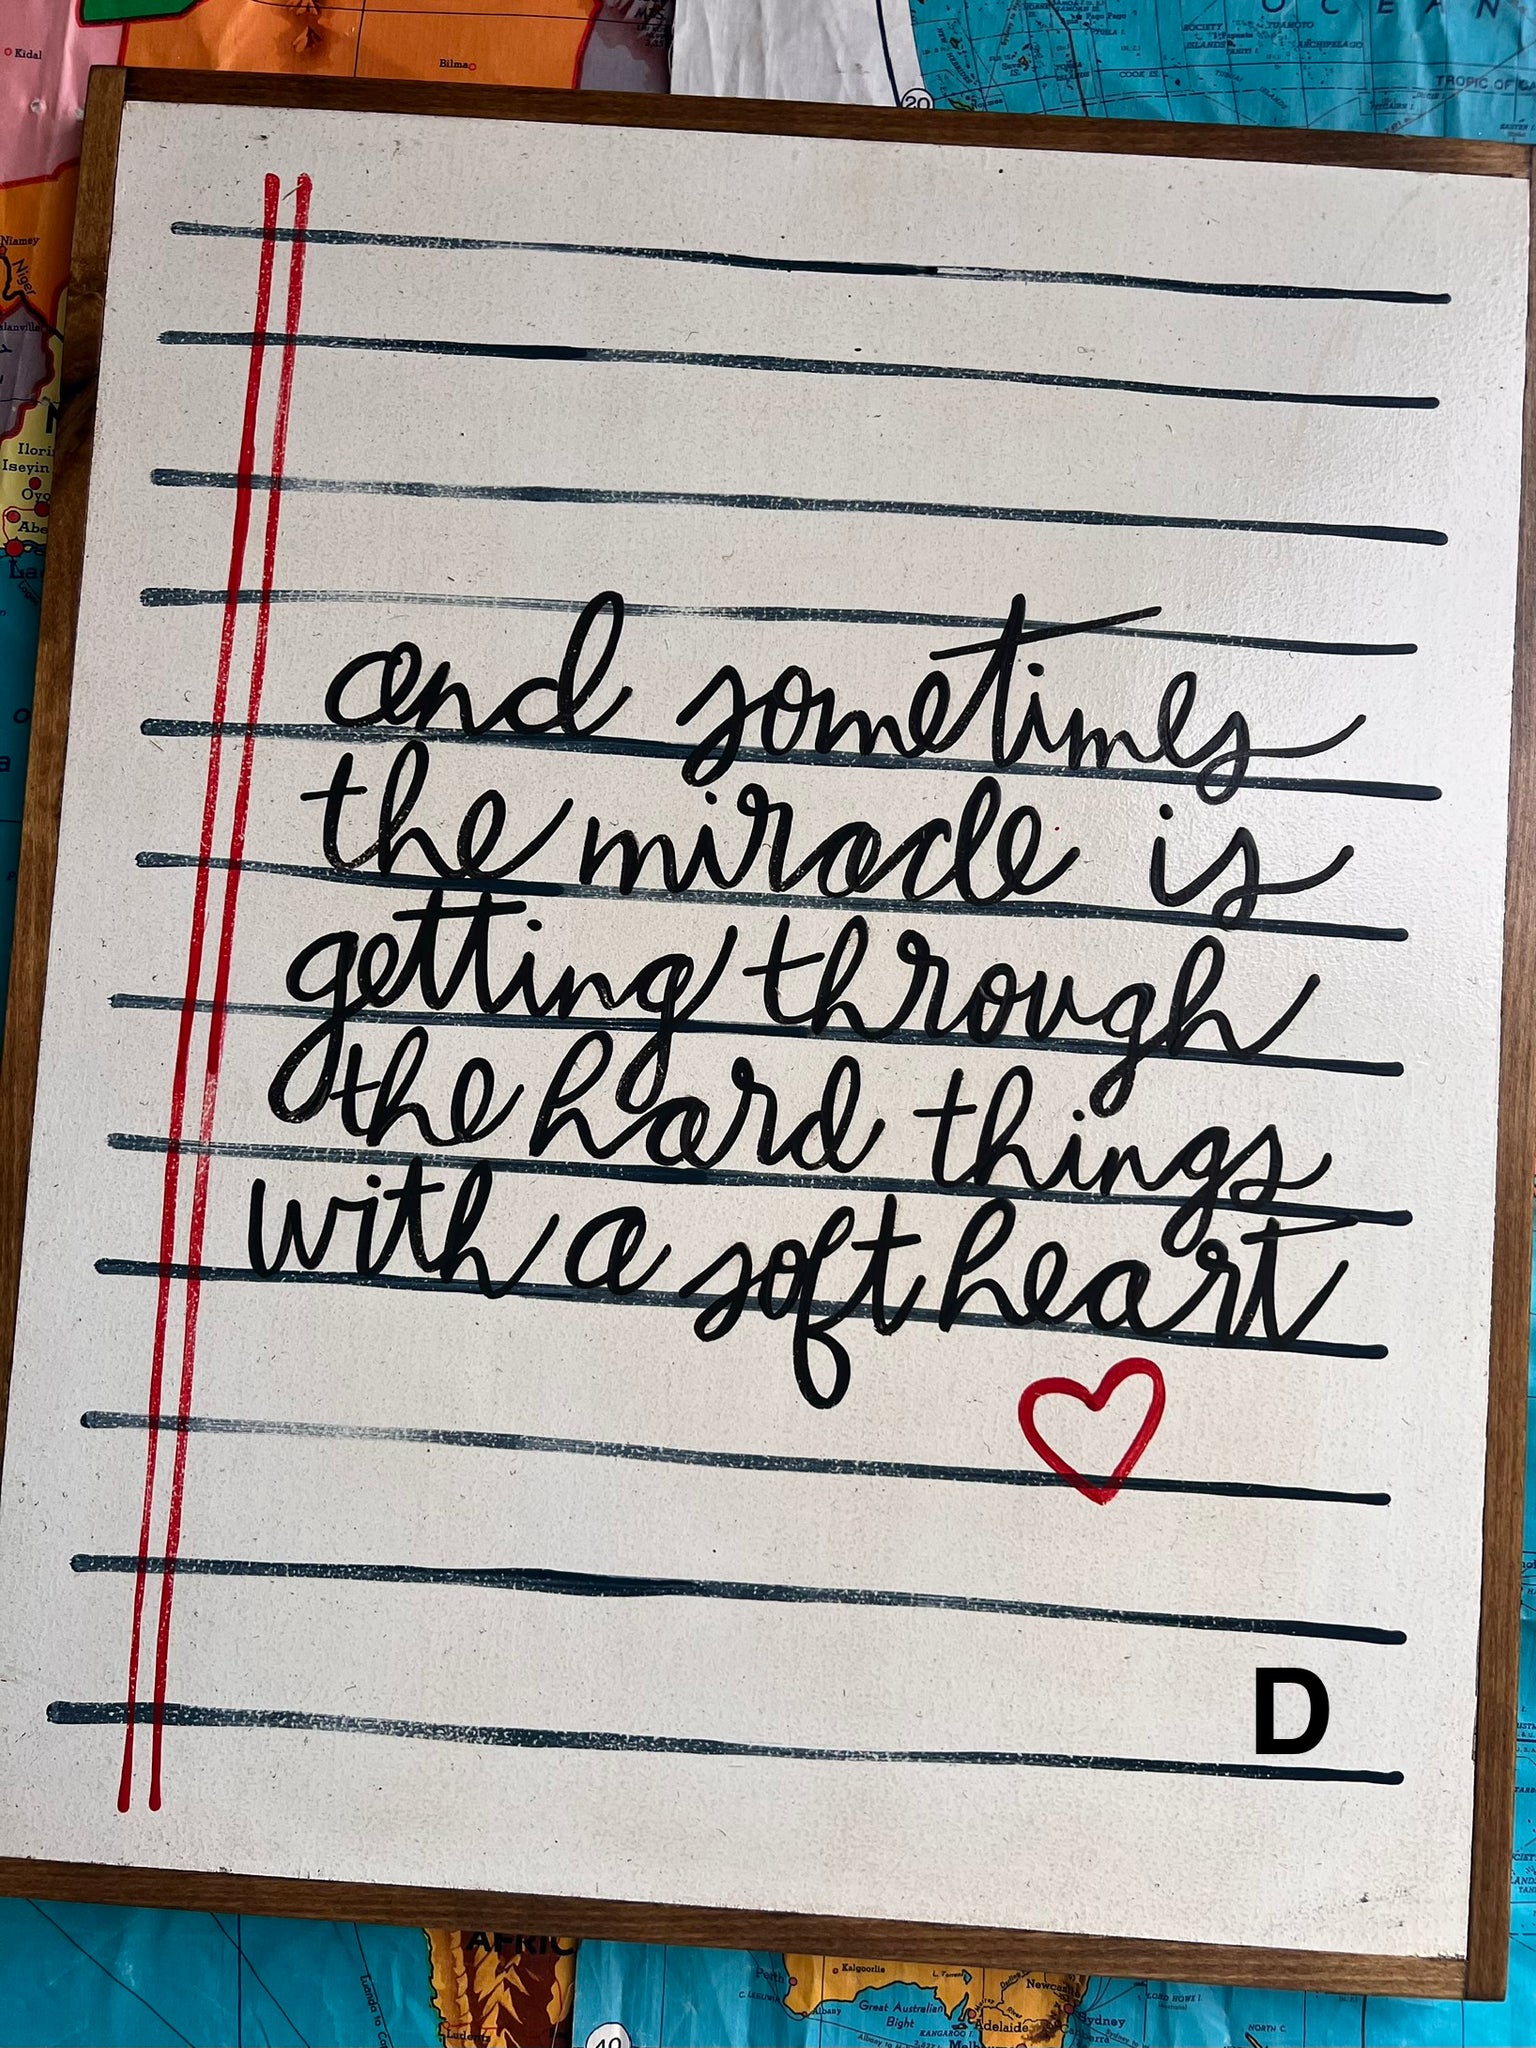 Kidal
Bilma
OCEAN
SOCIETY ISLANDS
COOK IS.
TROPIC OF CA
20
Niamey
Niger
Ilori
Iseyin
Oyo
Abe
and sometimes
the miracle is
getting through
the hard things
with a soft heart
D
AFRIC
Luderitz
40
Perth
Kalgoorlie
Albany
Great Australian
Bight
KANGAROO I.
Adelaide
Newcas
Sydney
Canberra
Melb
LORD HOWE I.
NORTH C.